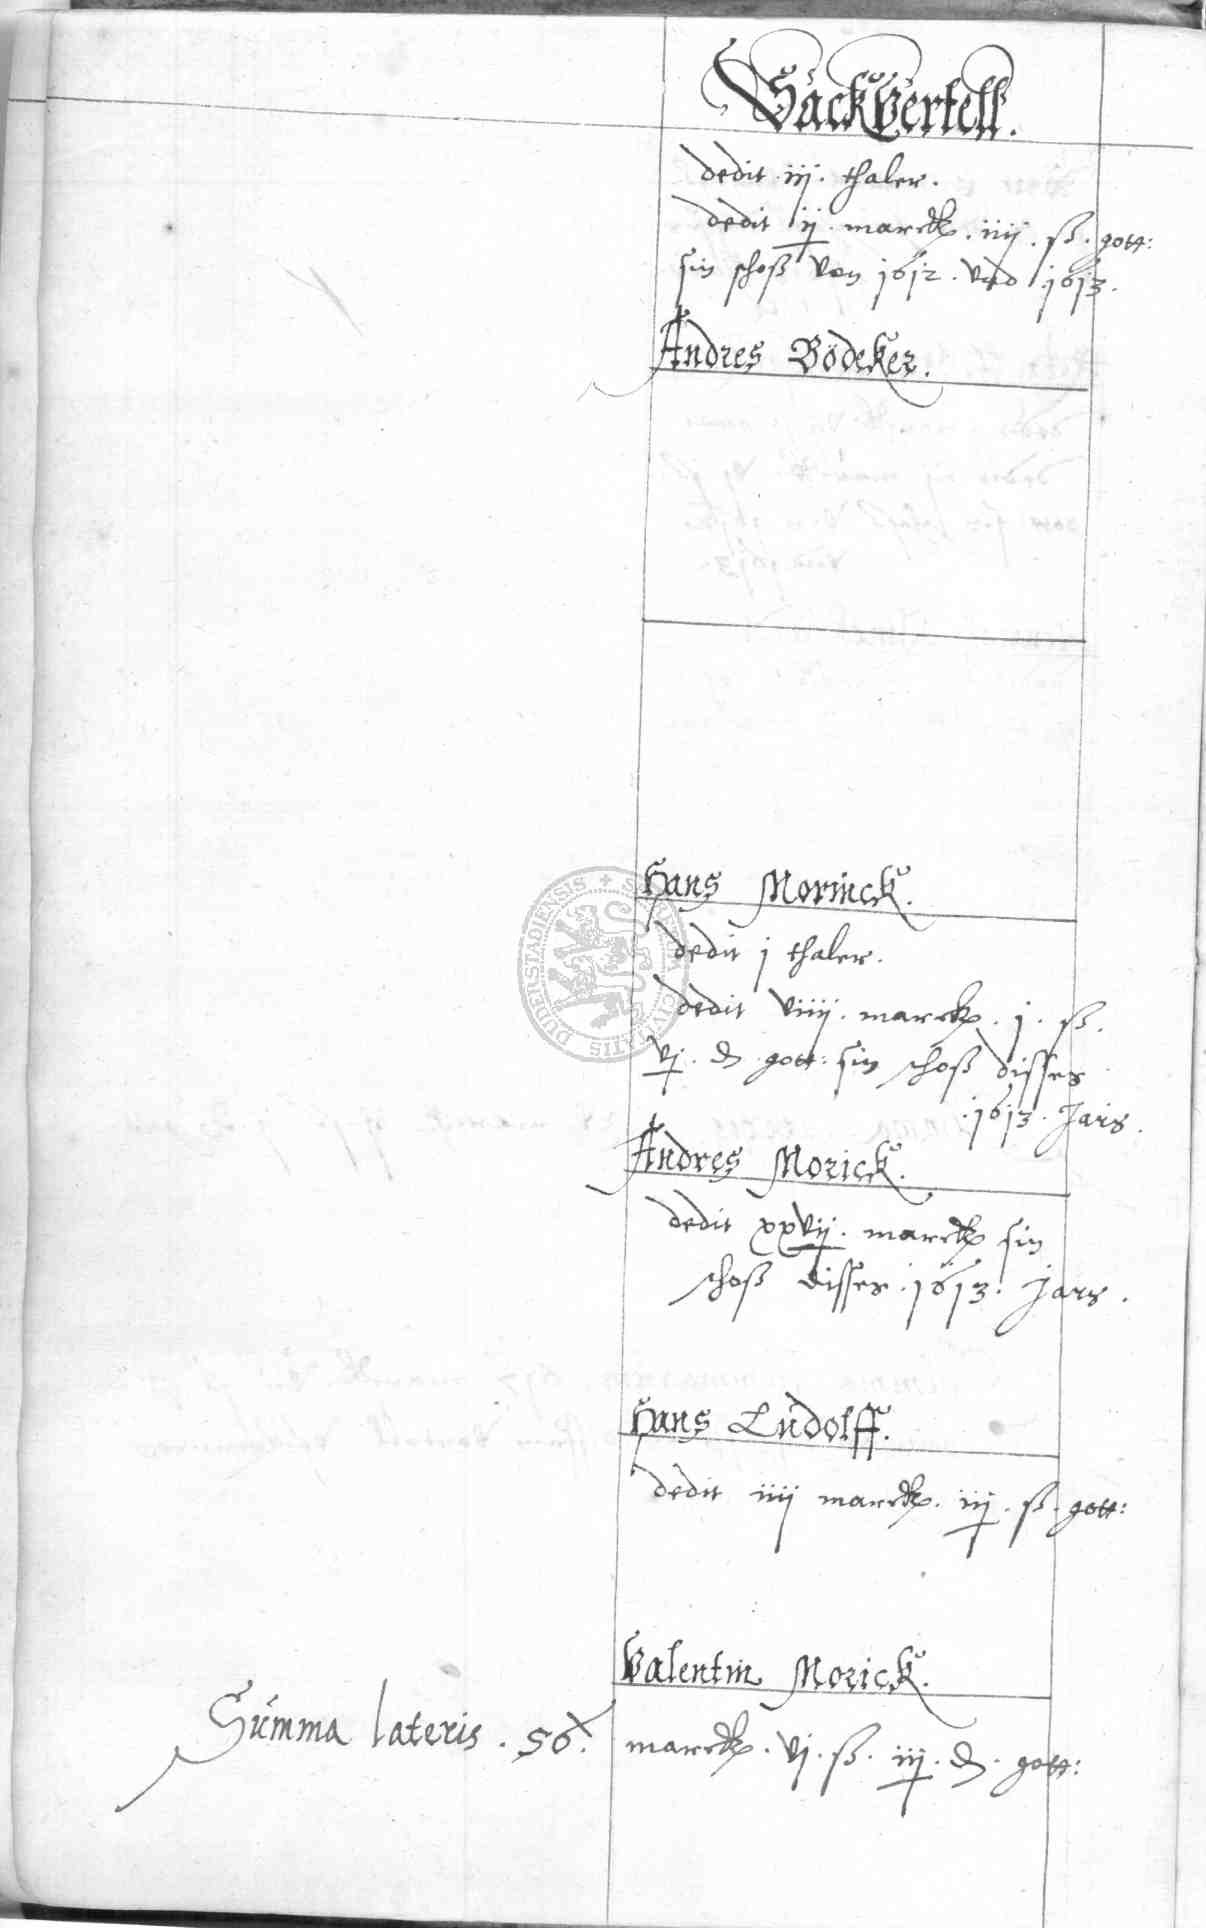 SackVertell.
dedit .iij. thaler.
dedit ij . marck . iiij . ß . gott:
sin schoß von 1612 . vnd 1613 .
Andres Bödeker.
Hans Morinck.
dedit j thaler.
dedit viiij . marck . j . ß .
vj . ₰ . gott: sin schoß disses
.1613 . Jars .
Andres Morick.
dedit xxvij . marck sin
schoß disses .1613. Jars .
Hans Ludolff.
dedit iiij marck . iij . ß . gott:
Valentin Morick.
Summa lateris . 56 . marck . vj . ß . iij . ₰ . gott:
SIGILLUM SECRETUM CIVITATIS DUDERSTADIENSIS